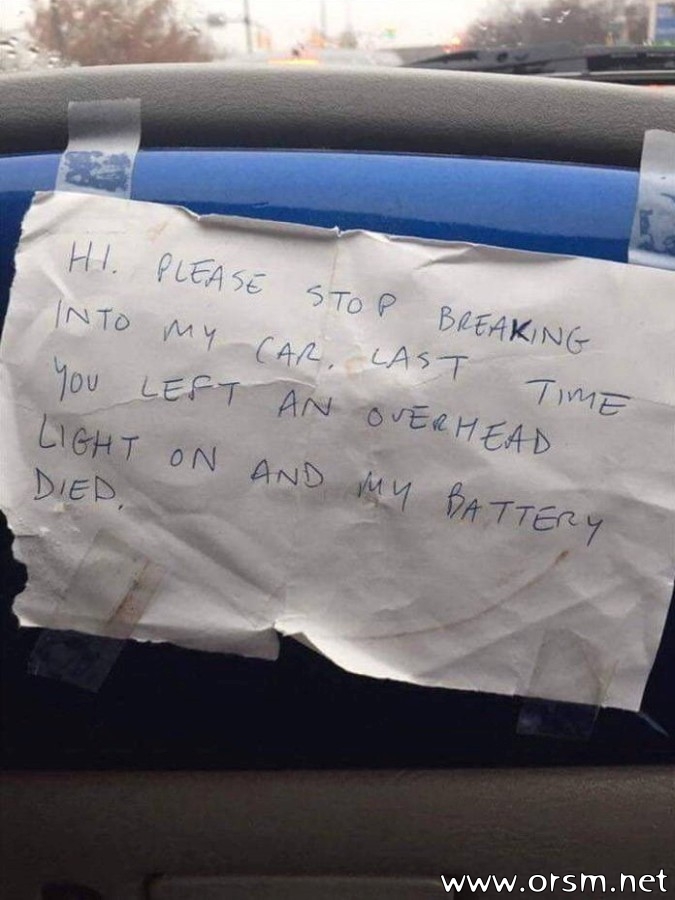 HI. PLEASE STOP BREAKING
INTO MY CAR. LAST TIME
YOU LEFT AN OVERHEAD
LIGHT ON AND MY BATTERY
DIED.
www.orsm.net